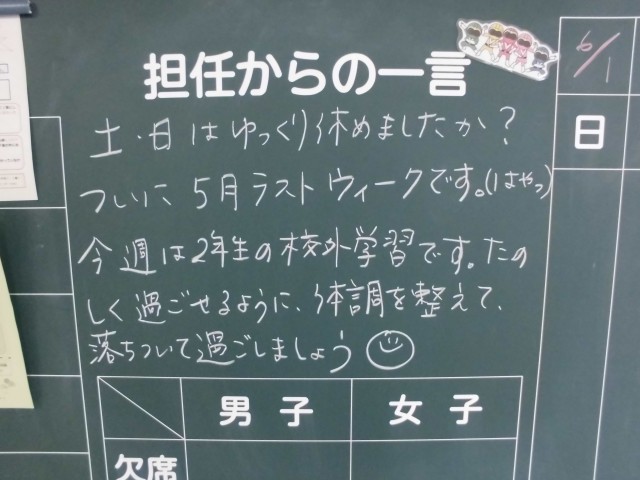 担任からの一言
土・日はゆっくり休めましたか?
ついに5月ラストウィークです。(はやっ)
今週は2年生の校外学習です。たの
しく過ごせるように、体調を整えて、
落ちついて過ごしましょう
6/1
日
男子 女子
欠席